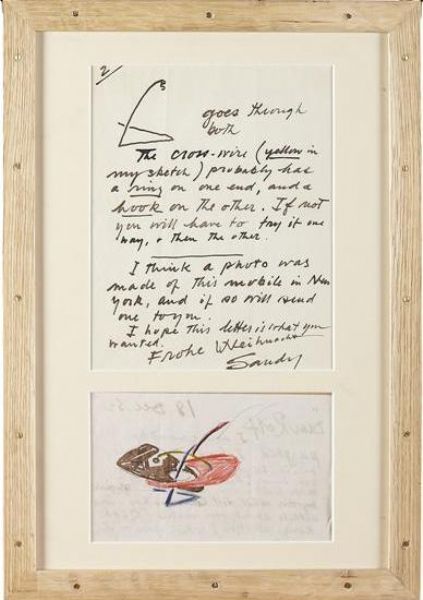 2/
goes through
both
The cross-wire (yellow in
my sketch) probably has
a ring on one end, and a
hook on the other. If not
you will have to try it one
way, & then the other.
I think a photo was
made of this mobile in New
York, and if so will send
one to you.
I hope this letter is what you
wanted.
Frohe Weihnacht
Sandy
18 Dec
Dear Rolf